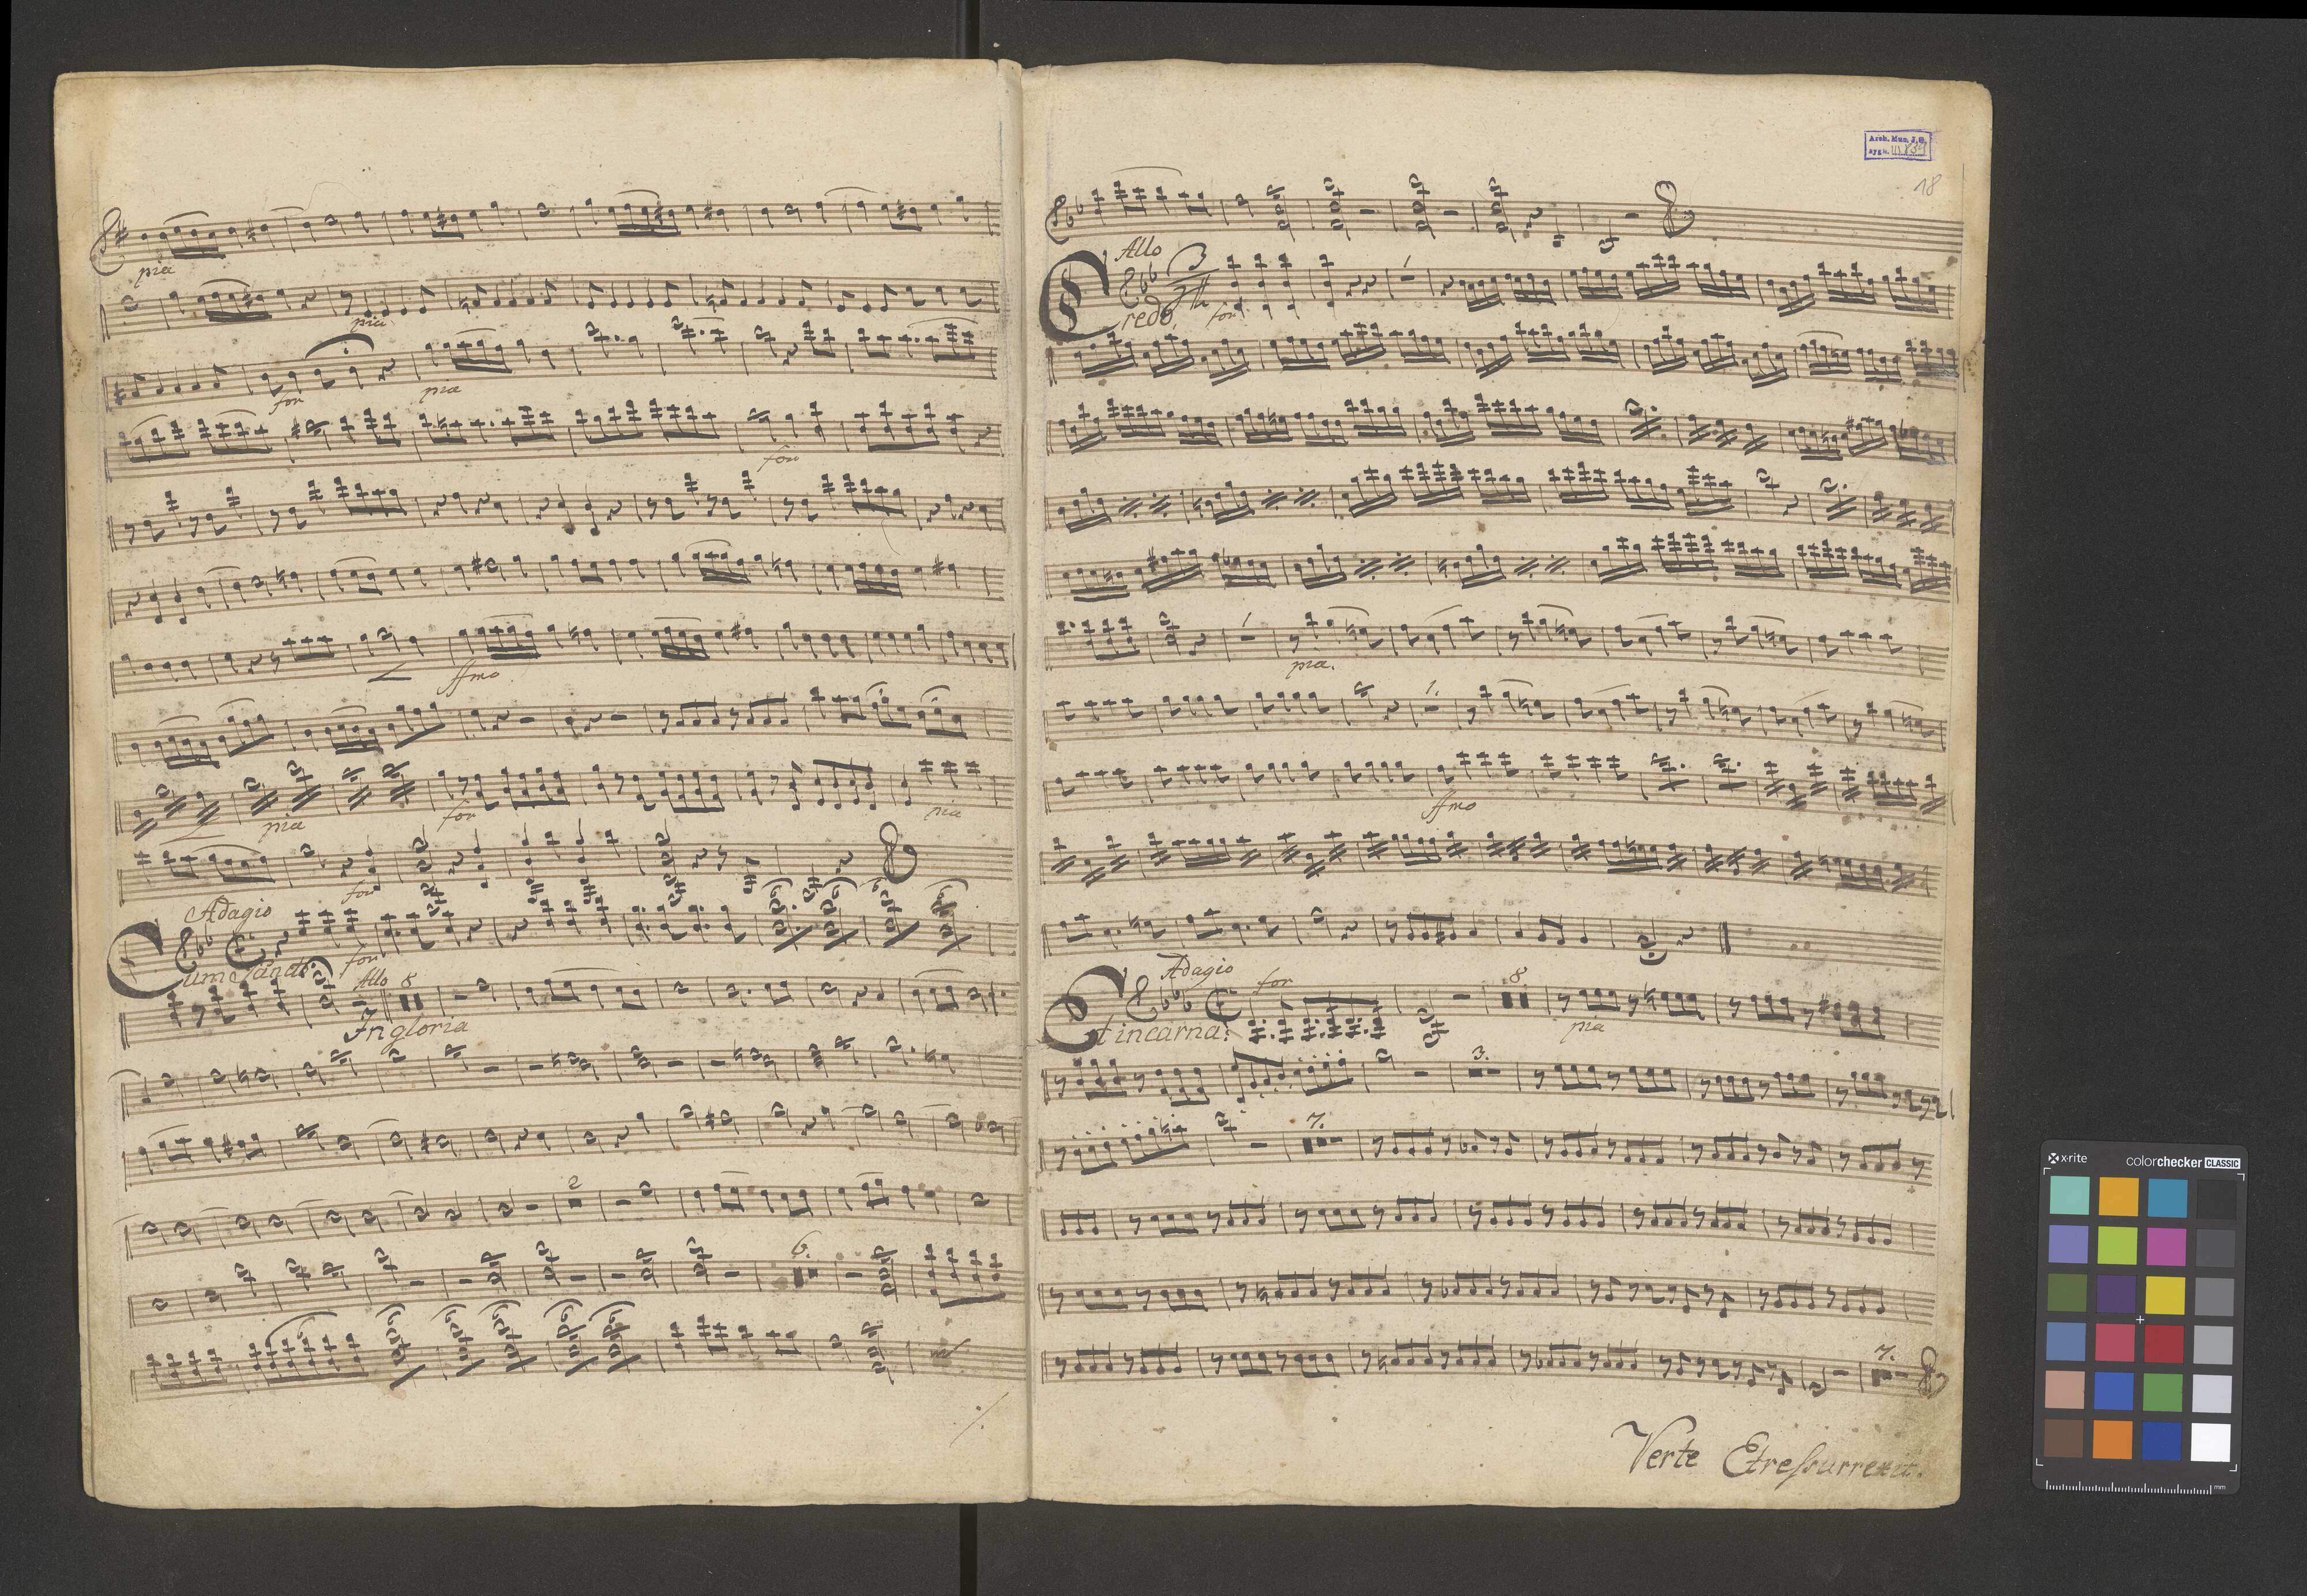 pia
pia
for
pia
for
ffmo
pia
for
pia
for
Adagio
Cum Sanct:
for
Allo
8
In gloria
2
6.
Arch. Mus. J.G.
sygn.
18
Allo
3
Credo,
for
1
pia.
1.
ffmo
Adagio
for
8.
Et incarna:
pia
3.
7.
7.
Verte Etressurrexit.
x-rite
colorchecker CLASSIC
mm